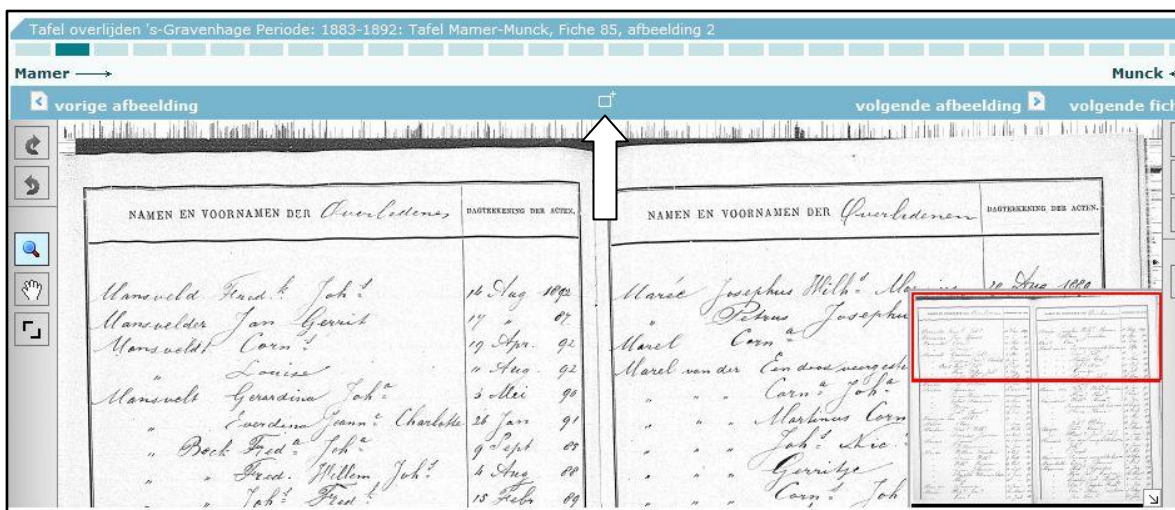 Tafel overlijden 's-Gravenhage Periode: 1883-1892: Tafel Mamer-Munck, Fiche 85, afbeelding 2
Mamer → Munck
vorige afbeelding volgende afbeelding volgende fich
NAMEN EN VOORNAMEN DER Overledenen DAGTEEKENING DER ACTEN.
Mansveld Fred.k Joh.s 14 Aug 1892
Mansvelder Jan Gerrit 17 " 87
Mansveldt Corn.s 19 Apr. 92
" Louise " Aug. 92
Mansvelt Gerardina Joh.a 3 Mei 90
" Everdina Jeann.a Charlotte 26 Jan 91
" Bock Fred.a Joh.a 9 Sept 85
" " Fred. Willem Joh.s 4 Aug 88
" " Joh.s Fred.k 15 Febr 89
NAMEN EN VOORNAMEN DER Overledenen DAGTEEKENING DER ACTEN.
Marée Josephus Wilh.s Aug 1889
" Petrus Josephu
Marel Corn.a
Marel van der Een dood aangest
" " " Corn.a Joh.a
" " " Martinus Corn
" " " Joh.s Nic.s
" " " Gerritje
" " " Corn.s Joh